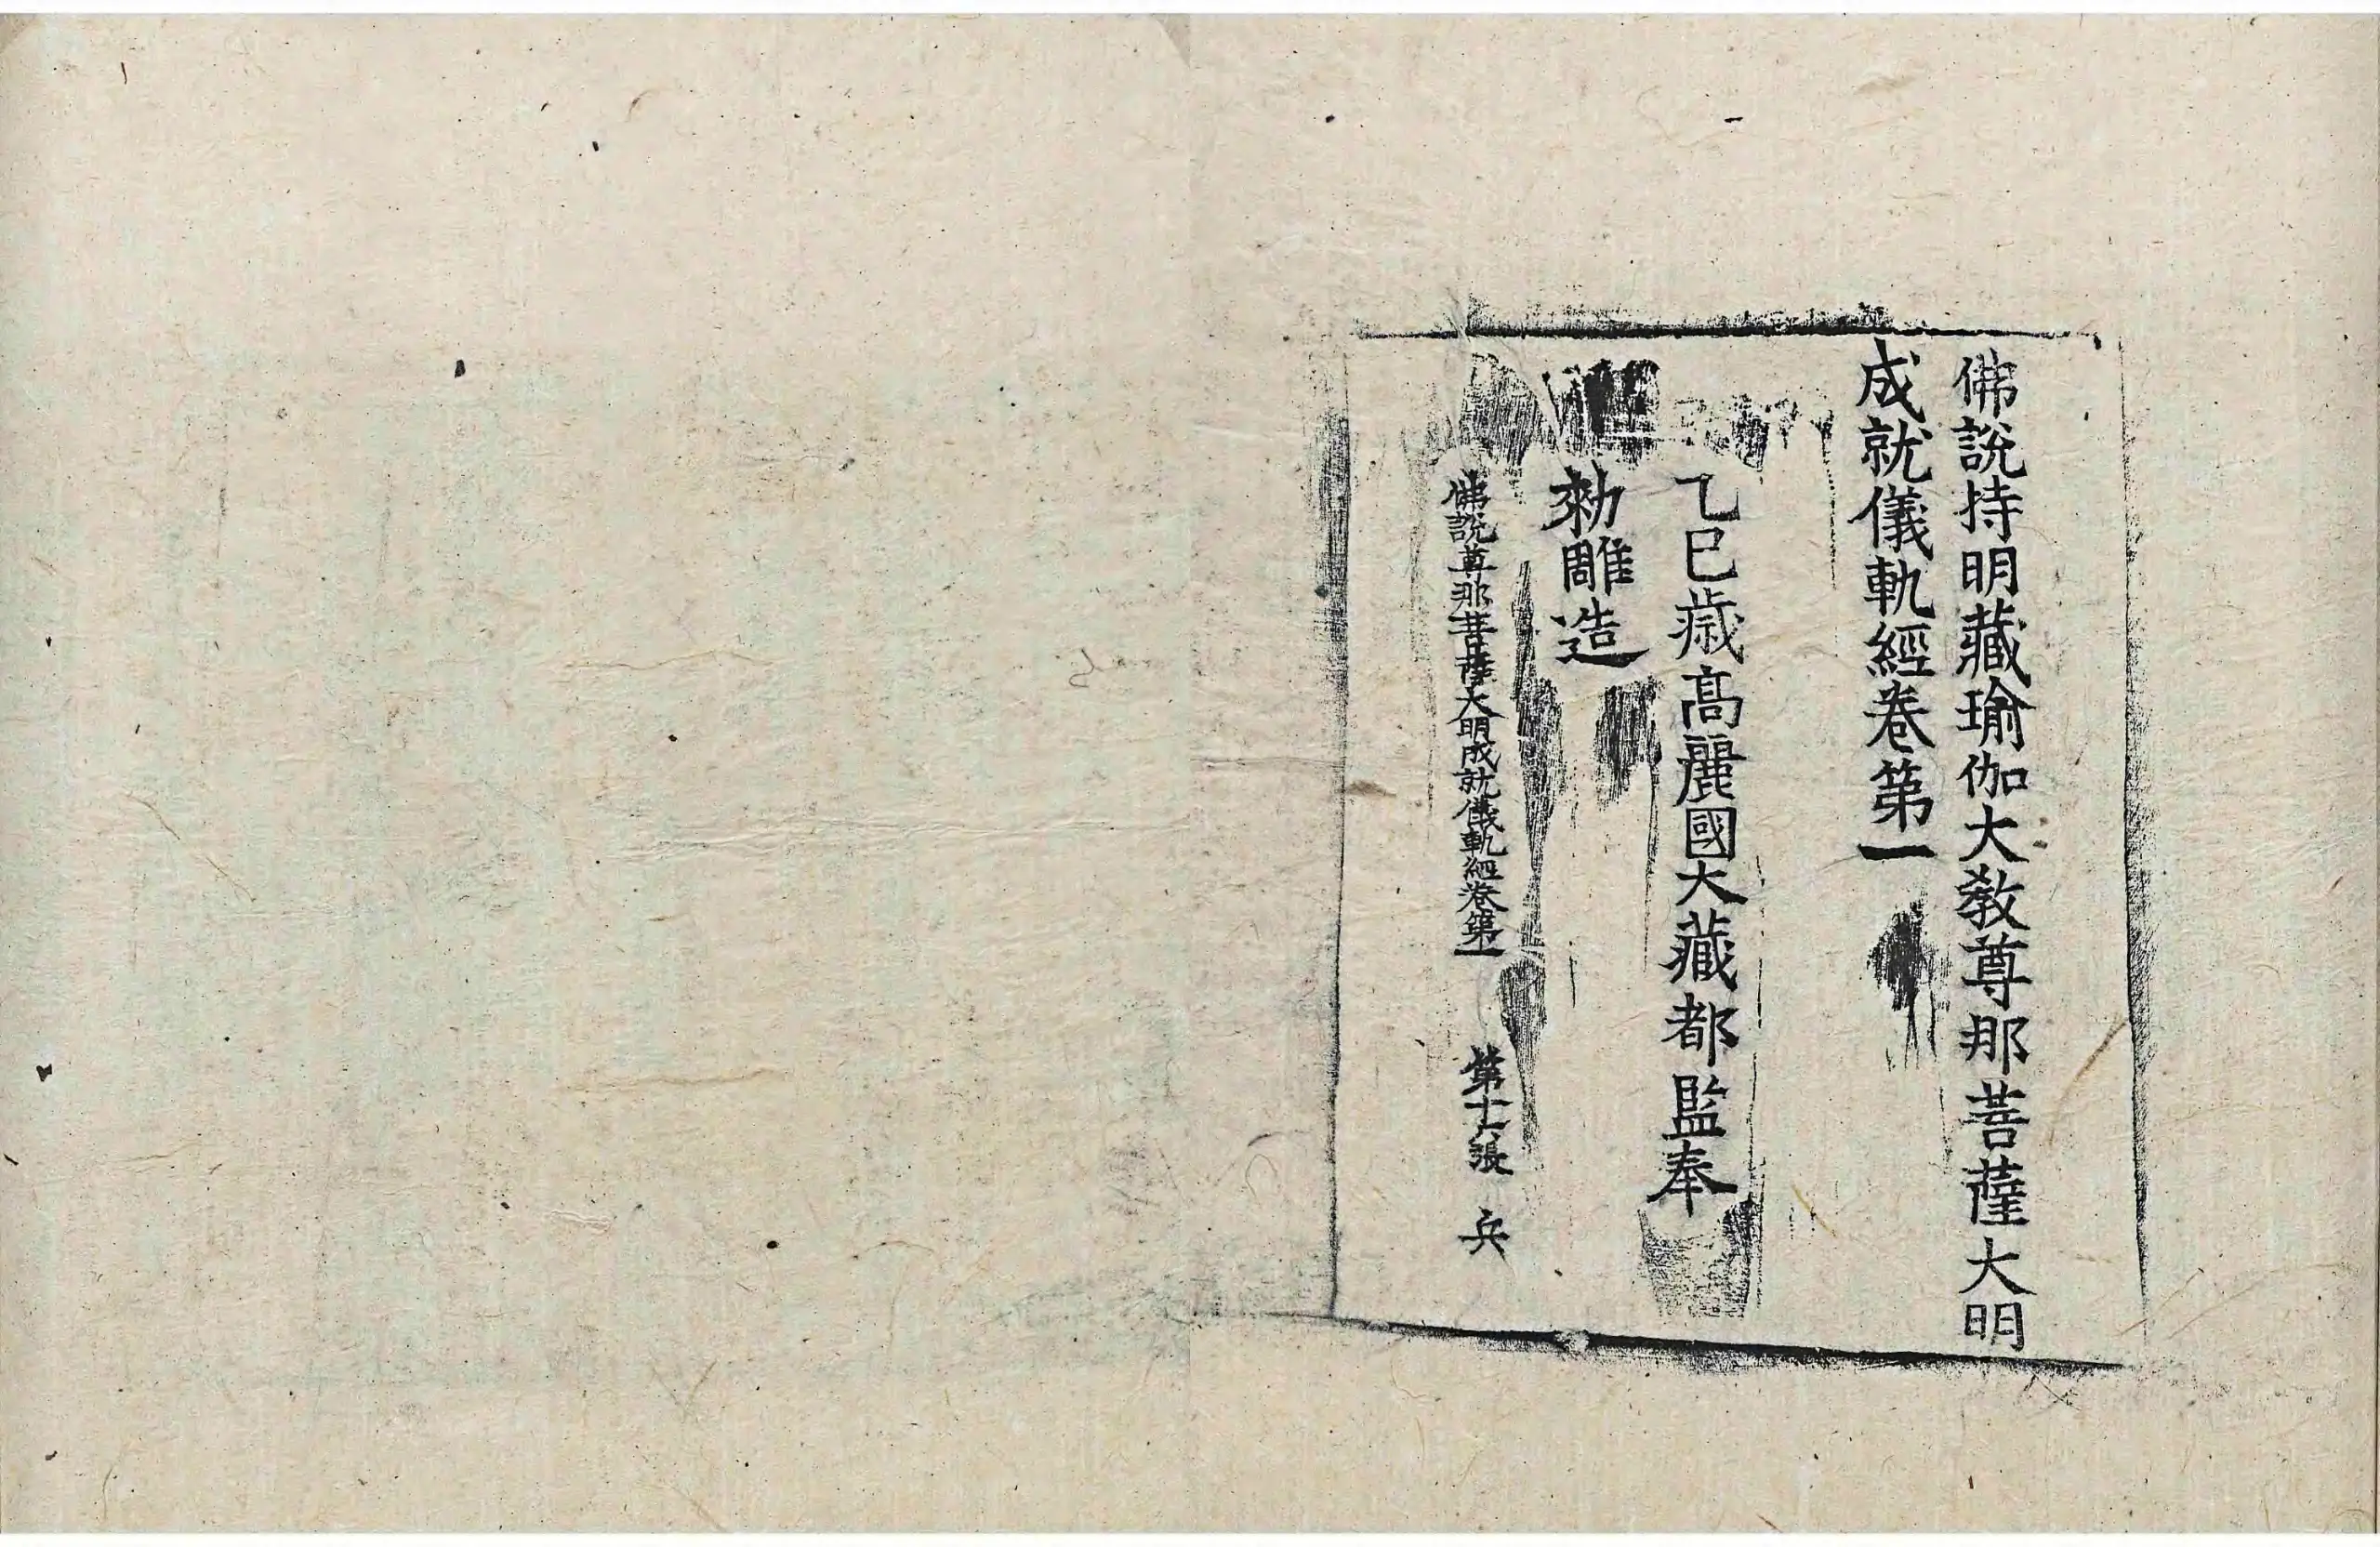 佛說持明藏瑜伽大敎尊那菩薩大明
成就儀軌經卷第一
乙巳歲高麗國大藏都監奉
勑雕造
佛說尊那菩薩大明成就儀軌經卷第一 第十六張 兵